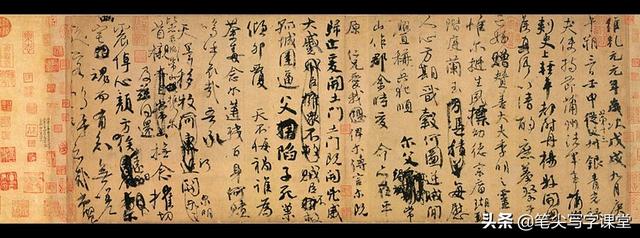 維乾元元年歲次戊戌九月庚
午朔三日壬申第十三叔銀青光祿
夫使持節蒲州諸軍事蒲州
刺史上輕車都尉丹楊縣開國
侯真卿以清酌庶羞祭于
亡姪贈贊善大夫季明之靈
惟爾挺生夙標幼德宗廟瑚璉
階庭蘭玉每慰
人心方期戩穀何圖逆賊閒
釁稱兵犯順爾父竭誠常
山作郡余時受命亦在平
原仁兄愛我俾爾傳言爾既
歸止爰開土門土門既開凶威
大蹙賊臣不救
孤城圍逼父陷子死巢
傾卵覆天不悔禍誰為
荼毒念爾遘殘百身何贖
嗚乎哀哉吾承
天澤移牧河關泉明
首櫬及茲同還撫念摧切
震悼心顏方俟
宅魂而有知無嗟
頭条@笔尖写字课堂